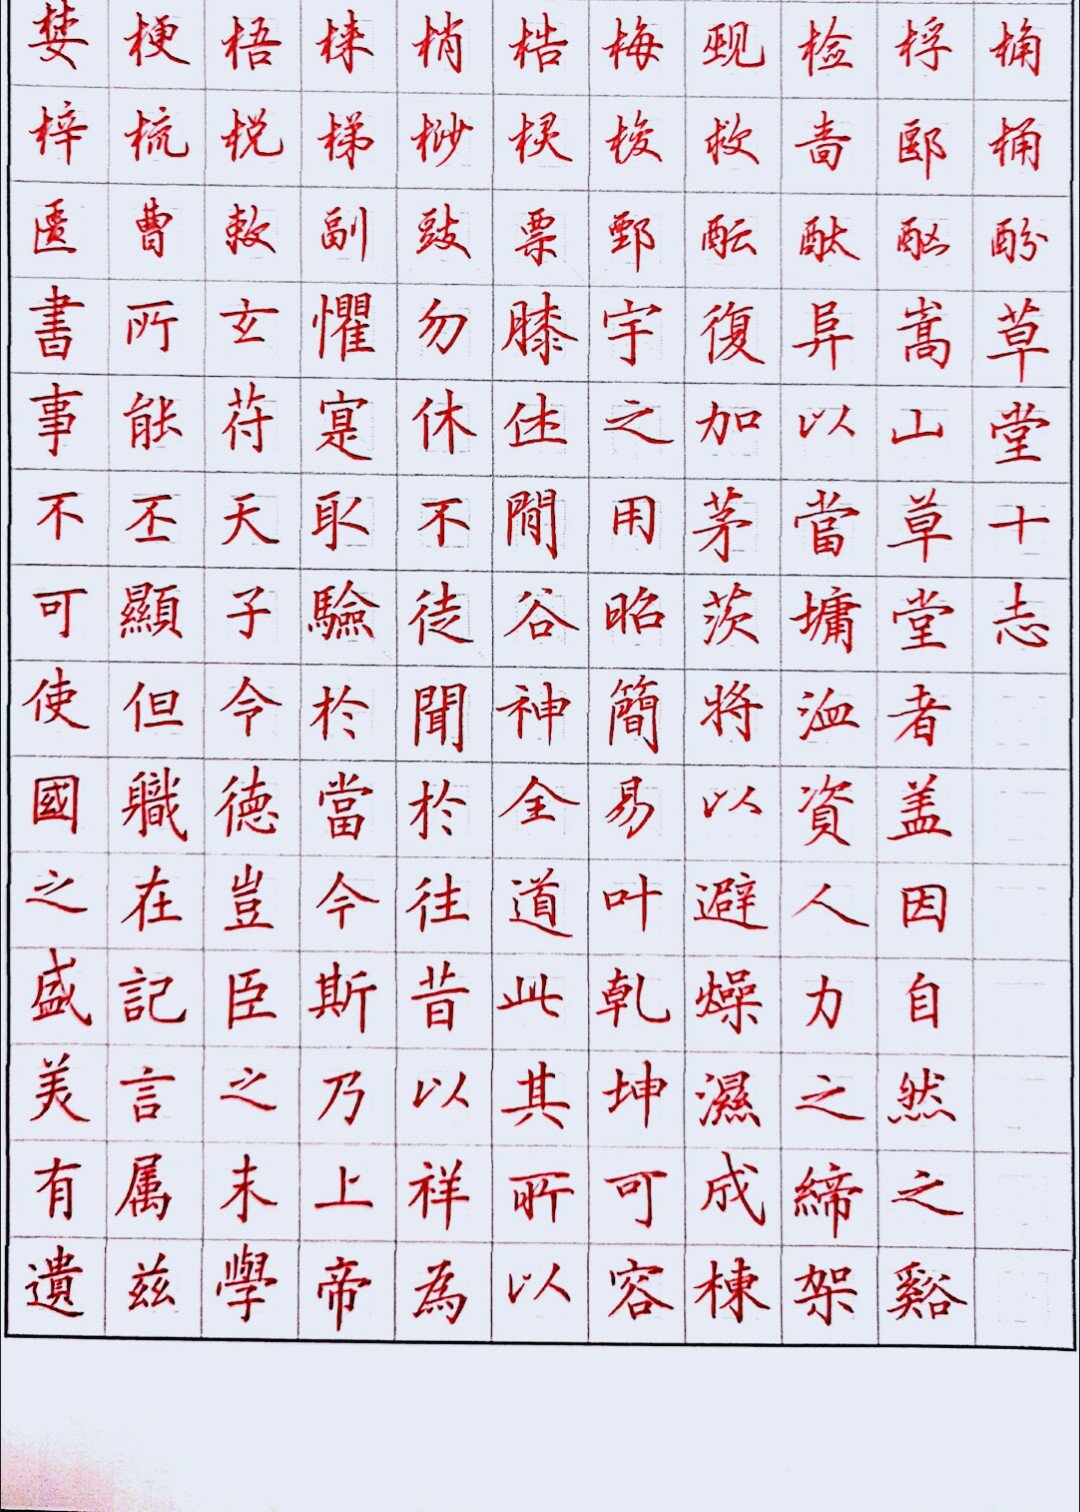 婪梗梧梾梢梏梅觋检桴桷
梓梳棁梯桫棂梭救啬郾桶
匮曹敕副豉票鄄酝酞酗酚
草堂十志
嵩山草堂者盖因自然之谿
阜以當墉洫資人力之締架
復加茅茨將以避燥濕成棟
宇之用昭簡易叶乾坤可容
膝休閒谷神全道此其所以
勿休不徒聞於往昔以祥為
懼寔取驗於當今斯乃上帝
玄符天子令德豈臣之末學
所能丕顯但職在記言属兹
書事不可使國之盛美有遺